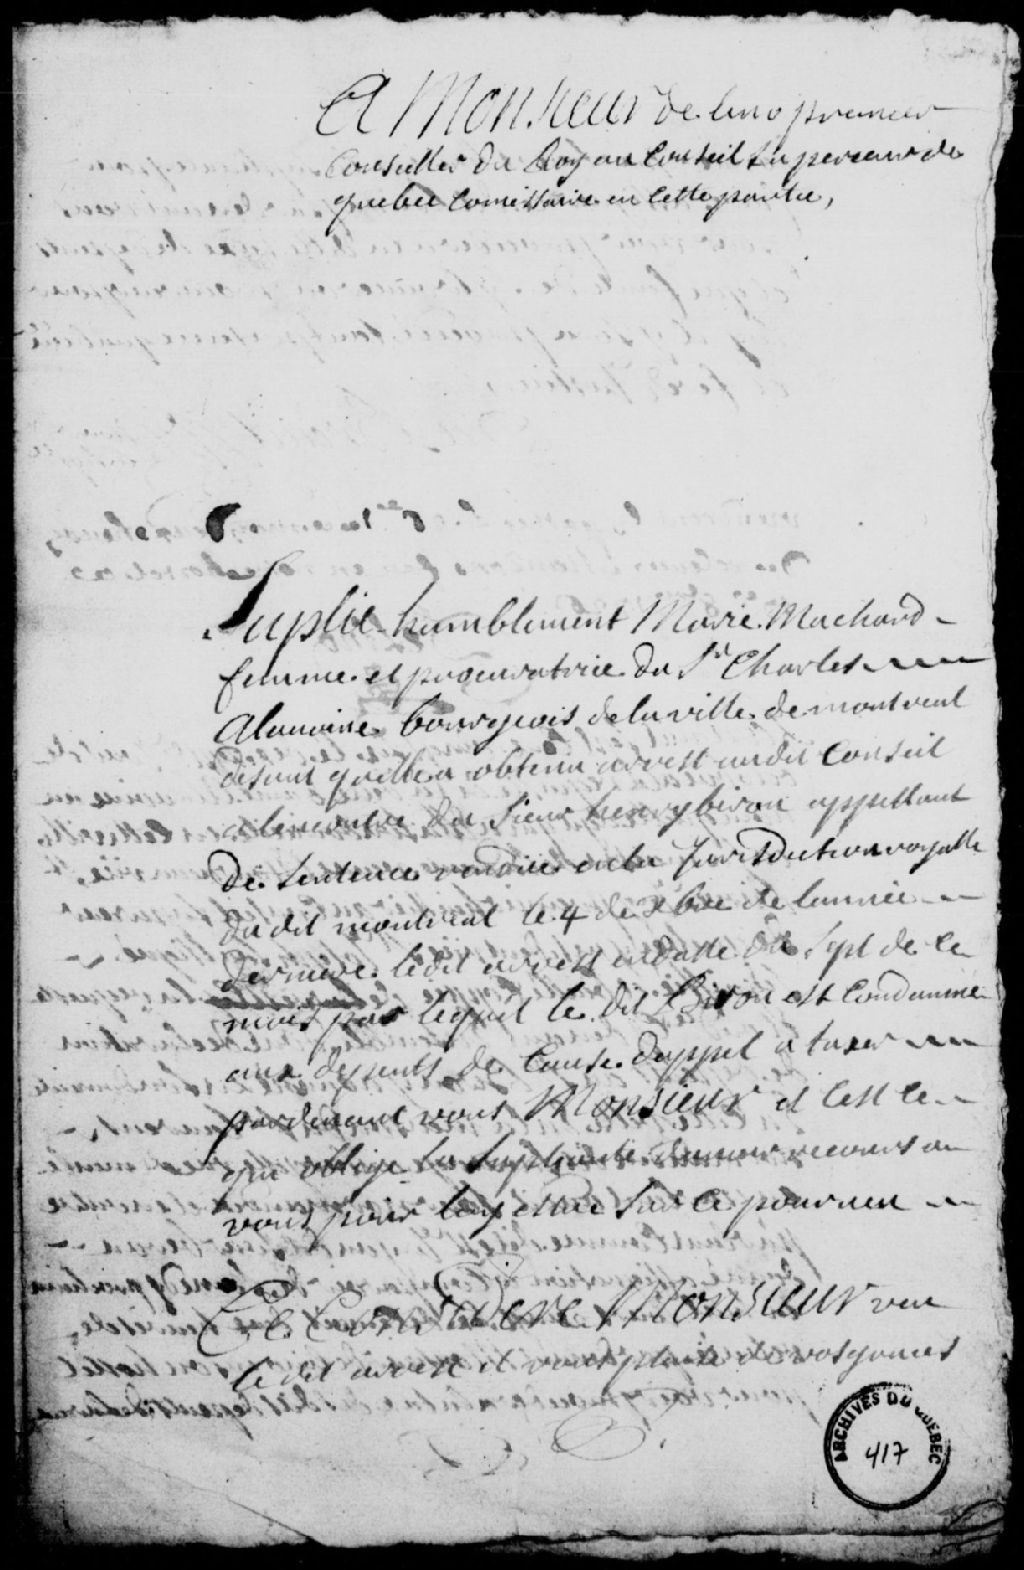 A Monsieur de lino premier
Conseiller du Roy au Conseil Superieur de
quebec Comissaire en cette partie,
Suplie humblement Marie Machard
femme et procuratrice du Sr Charles
alavoine bourgeois de la ville de montreal
disant quelle a obtenu arrest au dit Conseil
alencontre du Sieur henry biron appellant
de Sentence rendüe en la Jurisdiction royalle
du dit montreal le 4 de xbre de lannée
derniere ledit arrest en datte du Sept de ce
mois par lequel le dit Biron est Condamné
aux depents de Cause dappel a taxer
pardevant vous Monsieur et cest ce
qui oblige la Supliante davoir recours a
vous pour luy estre Sur ce pourveu
Ce Consideré Monsieur veu
le dit arrest il vous plaise de vos graces
ARCHIVES DU QUEBEC
417